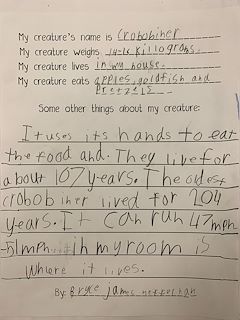 My creature's name is Crobobiher
My creature weighs 14-16 killogrobs.
My creature lives in my house.
My creature eats apples, goldfish and
pretzels
Some other things about my creature:
It uses its hands to eat
the food and. They live for
about 107 years. The oldest
crobobiher lived for 204
years. It can run 47mph
-51mph. in my room is
where it lives.
By: Bryce James